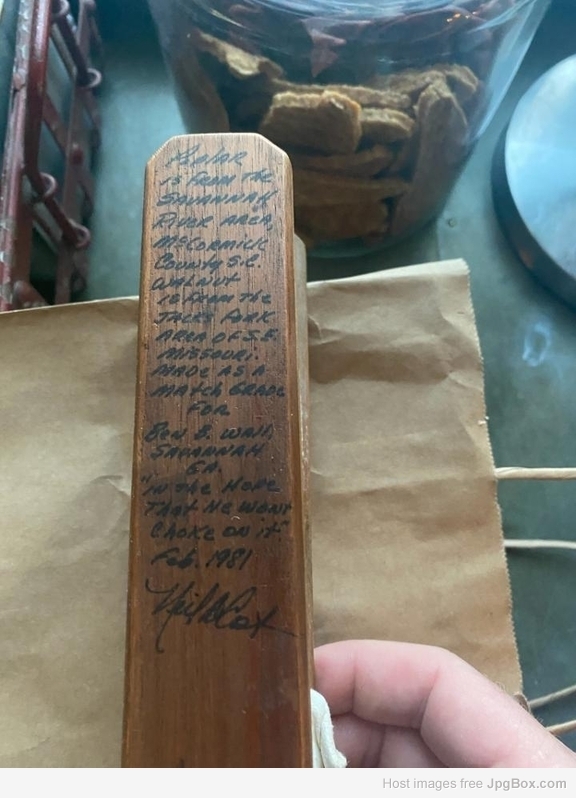 Poplar
is from the
Savannah
River area,
McCormick
County S.C.
Walnut
is from the
Jacks Fork
area of S.E.
Missouri.
Made as a
match grade
for
Ben B. Wall,
Savannah
GA.
"In the Hope
That He Wont
Choke on it"
Feb. 1981
Neil Cost
Host images free JpgBox.com